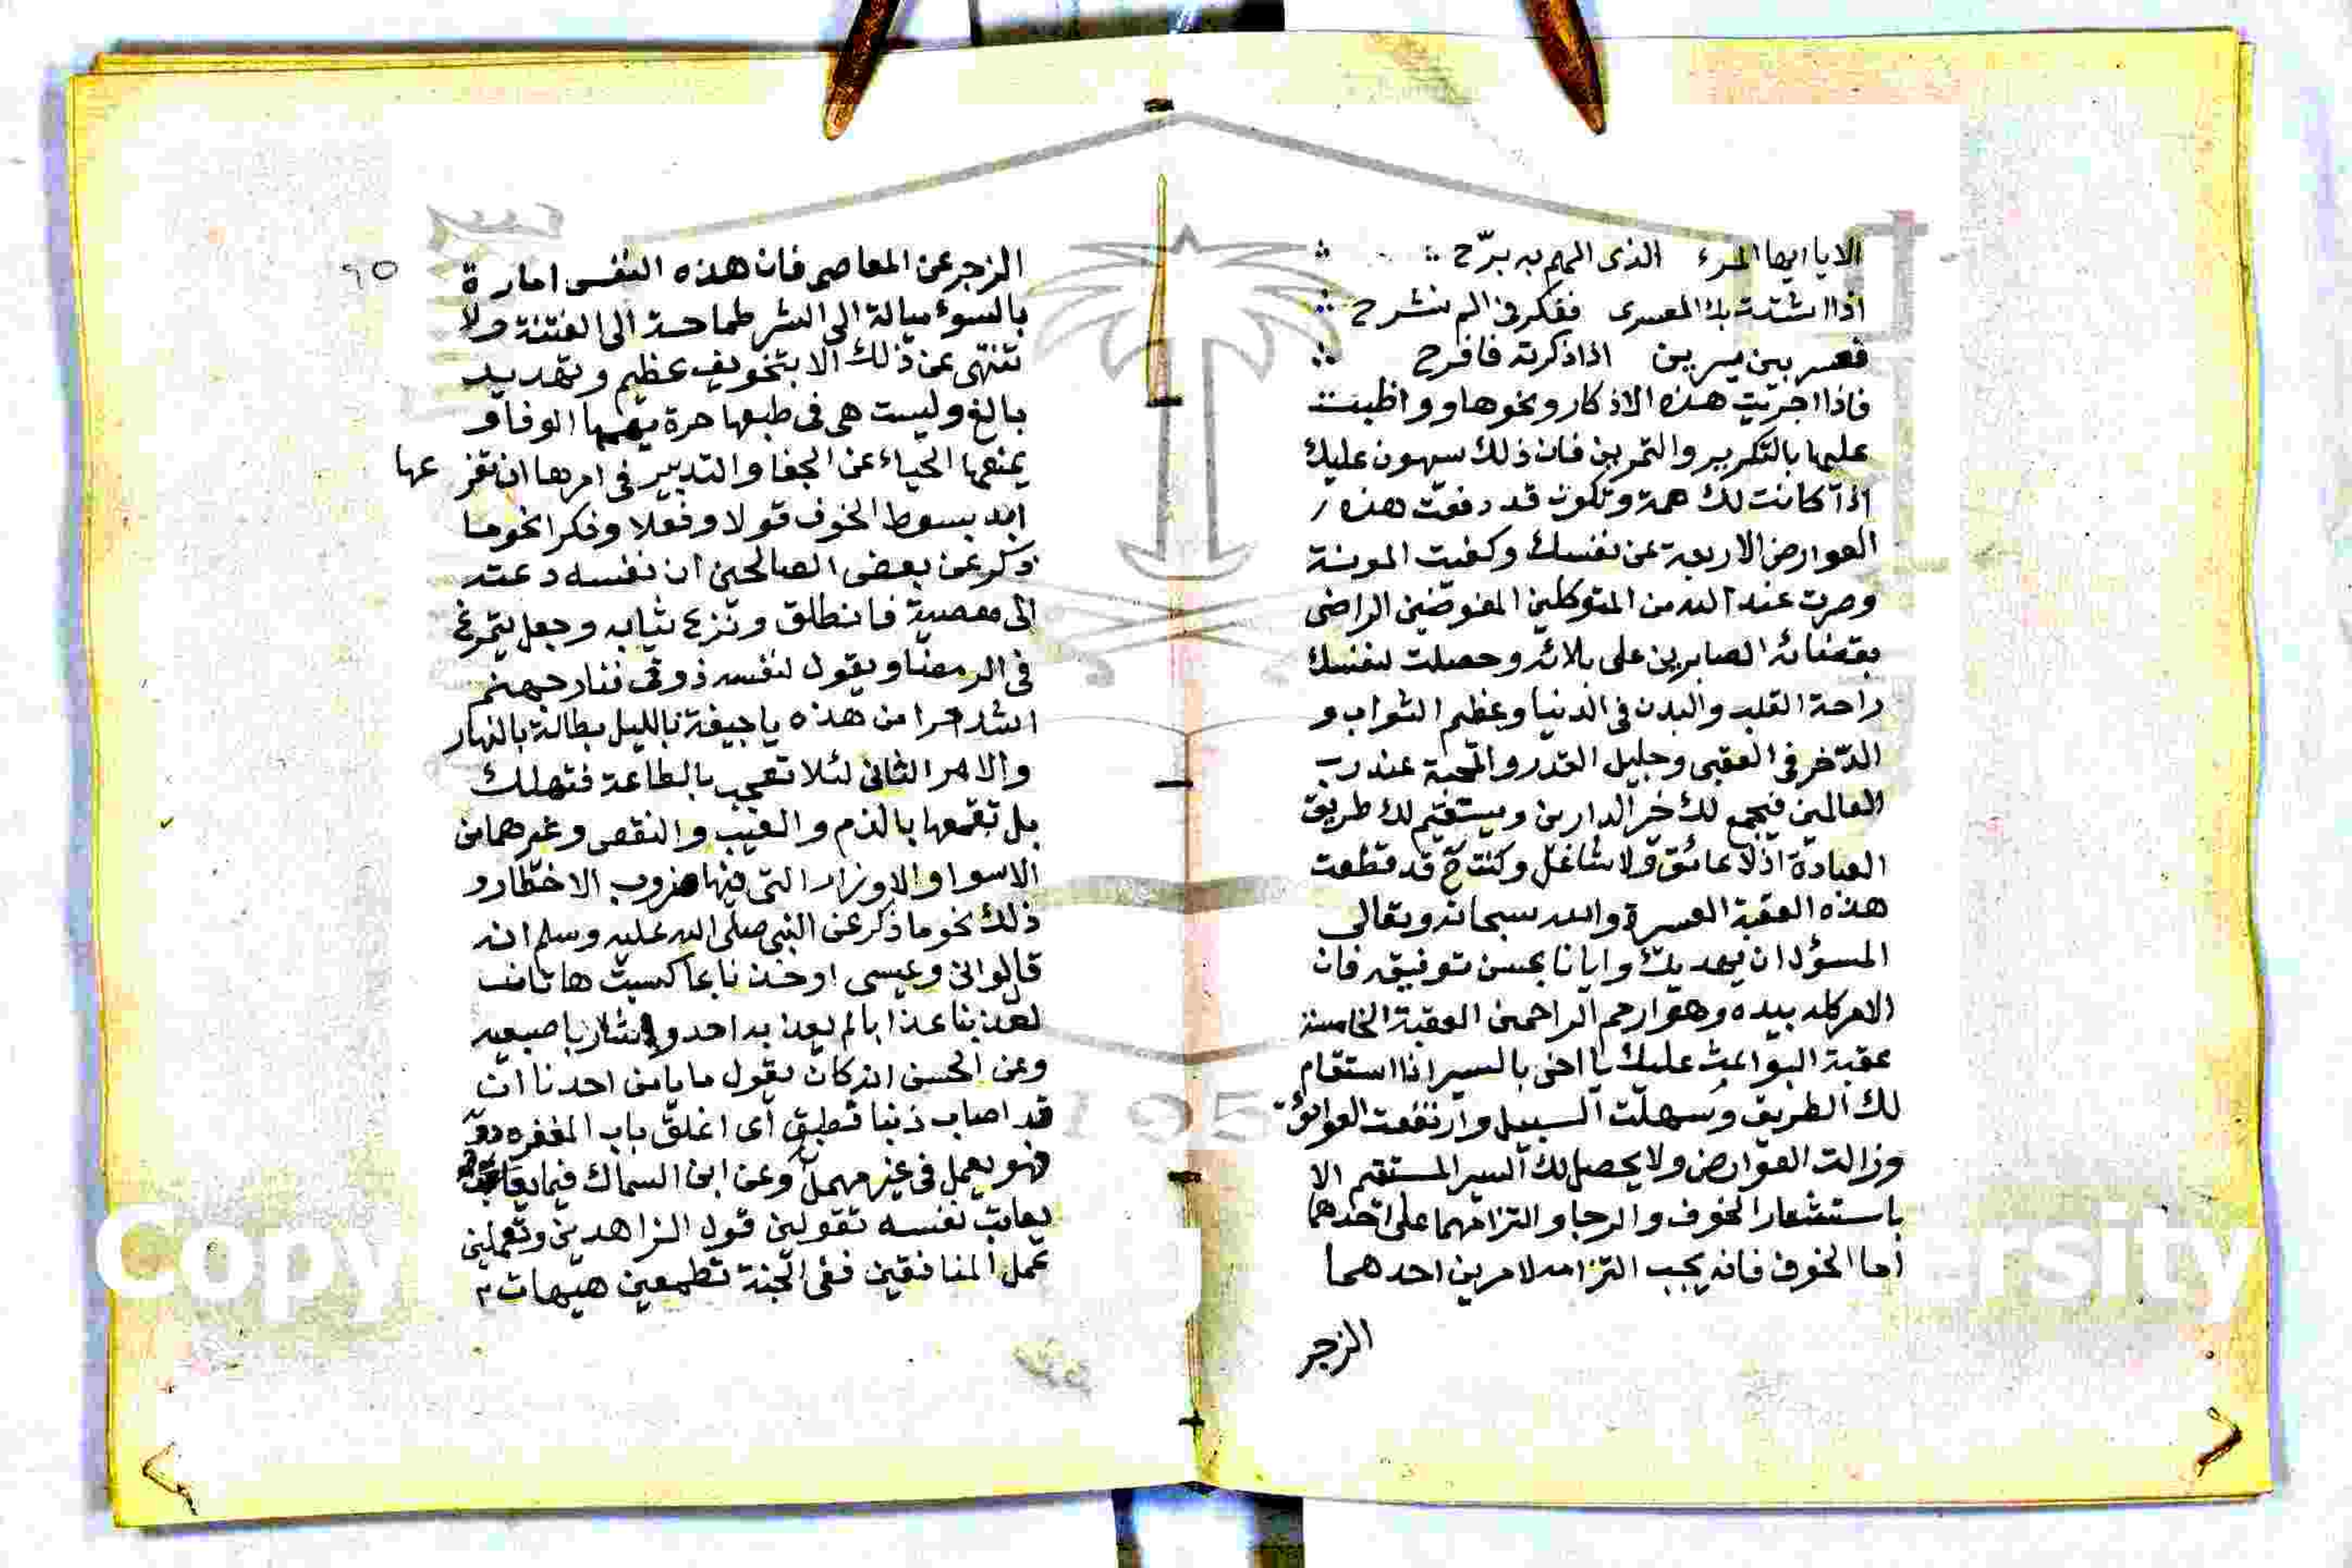 الا يا ايها المرء الذى الهم به برّح
اذا اشتدت بك العسرى ففكر فى الم نشرح
فعسر بين يسرين اذا ذكرته فافرح
فاذا اجريت هذه الاذكار ونحوها وواظبت
عليها بالتكرير والتمرين فان ذلك سهون عليك
اذا كانت لك همة وتكون قد دفعت هذه
العوارض الاربعة عن نفسك وكفيت المونة
وصرت عند الله من المتوكلين المفوّضين الراضى
بقضائه الصابرين على بلائه وحصلت لنفسك
راحة القلب والبدن فى الدنيا وعظيم الثواب و
الذخر فى العقبى وجليل القدر والمحبة عند رب
العالمين فيجمع لك خير الدارين ويستقيم لك طريق
العبادة اذ لا عائق ولا شاغل وكنت ح قد قطعت
هذه العقبة العسرة والله سبحانه وتعالى
المسؤل ان يمديك وايانا بحسن توفيقه فان
الامر كله بيده وهو ارحم الراحمين العقبة الخامسة
عقبة البواعث عليك يا اخى بالسير اذا استقام
لك الطريق وسهلت السبيل وارتفعت العوائق
وزالت العوارض ولا يحصل لك السير المستقيم الا
باستشعار الخوف والرجا والتزامهما على احدهما
اما الخوف فانه يجب التزامه لامرين احدهما
الزجر
٩٥
الزجر عن المعاصى فان هذه النفس امارة
بالسوء ميالة الى الشر طماحة الى الفتنة ولا
تنتهى عن ذلك الا بتخويف عظيم وتهديد
بالغ وليست هى فى طبعها حرة يهمها الوفا و
يمنعها الحياء عن الجفا والتدبير فى امرها ان تقرعها
ابد بسوط الخوف قولا وفعلا وفكرا نحو ما
ذكر عن بعض الصالحين ان نفسه دعته
الى معصية فانطلق ونزع ثيابه وجعل يتمرغ
فى الرمضا ويقول لنفسه ذوقى فنار جهنم
اشد حرا من هذه يا جيفة بالليل بطالة بالنهار
والامر الثانى لئلا تعجب بالطاعة فتهلك
بل تقمعها بالذم والعيب والنقص وغيرها من
الاسوا والاوزار التى فيها ضروب الاخطار و
ذلك نحو ما ذكر عن النبى صلى الله عليه وسلم انه
قال لو انى وعيسى اوخذنا بما كسبت هاتان
لعذبنا عذابا لم يعذبه احد واشار باصبعيه
وعن الحسن انه كان يقول ما يامن احدنا ان
قد اصاب ذنبا فطبق اى اغلق باب المغفره دونه
فهو يعمل فى غير مهمل وعن ابن السماك فيما
يعاتب نفسه تقولين قول الزاهدين وتعملين
عمل المنافقين ففى الجنة تطمعين هيهات